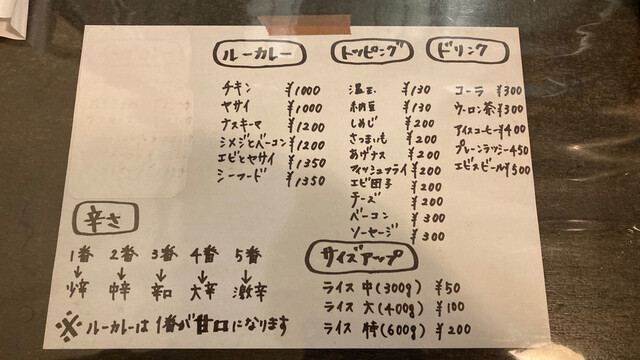 ルーカレー
チキン ¥1000
ヤサイ ¥1000
ナスキーマ ¥1200
シメジとベーコン ¥1200
エビとヤサイ ¥1350
シーフード ¥1350
トッピング
温玉 ¥130
納豆 ¥130
しめじ ¥200
さつまいも ¥200
あげナス ¥200
フィッシュフライ ¥200
エビ団子 ¥200
チーズ ¥200
ベーコン ¥300
ソーセージ ¥300
ドリンク
コーラ ¥300
ウーロン茶 ¥300
アイスコーヒー ¥400
プレーンラッシー 450
エビスビール ¥500
辛さ
1番 2番 3番 4番 5番
↓ ↓ ↓ ↓ ↓
少辛 中辛 辛口 大辛 激辛
※ルーカレーは1番が甘口になります
サイズアップ
ライス 中(300g) ¥50
ライス 大(400g) ¥100
ライス 特(600g) ¥200